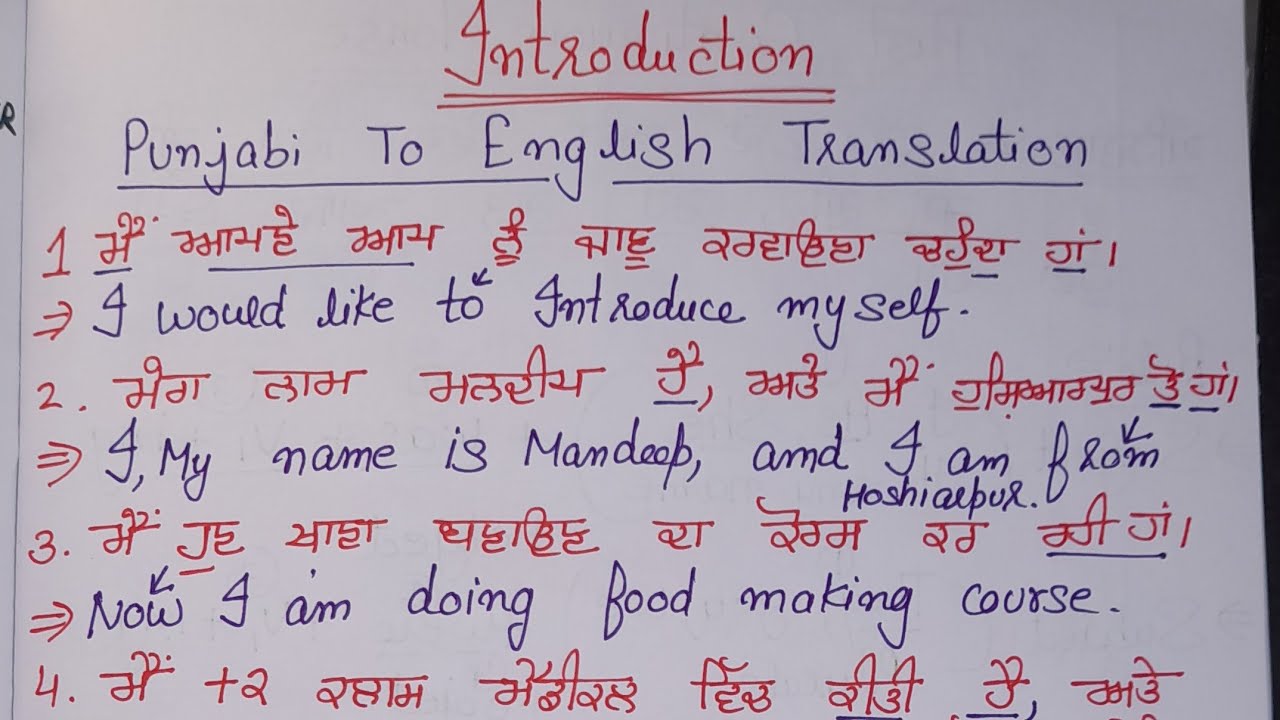 Introduction
R
Punjabi To English Translation
1 ਮੈਂ ਆਪਣੇ ਆਪ ਨੂੰ ਜਾਣੂ ਕਰਵਾਉਣਾ ਚਹੁੰਦਾ ਹਾਂ।
⇒ I would like to Introduce myself.
2. ਮੇਰਾ ਨਾਮ ਮਨਦੀਪ ਹੈ, ਅਤੇ ਮੈਂ ਹੁਸ਼ਿਆਰਪੁਰ ਤੋਂ ਹਾਂ।
⇒ I, My name is Mandeep, amd I am from
Hoshiarpur.
3. ਮੈਂ ਹੁਣ ਖਾਣਾ ਬਣਾਉਣ ਦਾ ਕੋਰਸ ਕਰ ਰਹੀ ਹਾਂ।
⇒ Now I am doing food making course.
4. ਮੈਂ +2 ਕਲਾਸ ਮੈਡੀਕਲ ਵਿੱਚ ਕੀਤੀ ਹੈ, ਅਤੇ